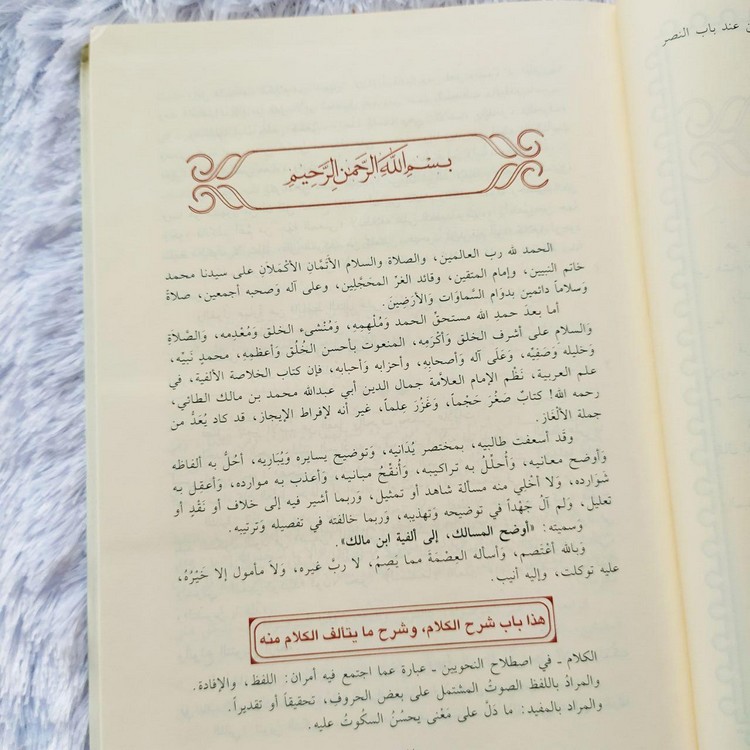 ن عند باب النصر
بسم الله الرحمن الرحيم
الحمد لله رب العالمين، والصلاة والسلام الأَتَمَّانِ الأَكْمَلاَنِ على سيدنا محمد
خاتم النبيين، وإمام المتقين، وقائد الغرّ المحَجَّلِين، وعلى آله وَصَحبه أجمعين، صلاةً
وَسلاماً دائمين بدَوام السَّماوَات وَالأرَضِينَ.
أما بعدَ حمدِ الله مستحقِّ الحمد وَمُلْهِمِهِ، وَمُنْشىء الخلق وَمُعْدِمه، وَالصَّلاَةِ
وَالسلامِ على أشرف الخلق وَأكْرَمِه، المنعوت بأحسن الخُلُق وَأعظمِه، محمدٍ نَبِيِّه،
وَخليله وَصَفِيِّه، وَعَلَى آله وَأصحابِهِ، وأحزابه وَأحبابه، فإن كتاب الخلاصة الألفية، في
علم العربية، نَظْم الإمام العلاَّمة جمال الدين أبي عبدالله محمد بن مالك الطائي،
رحمه الله! كتابٌ صَغُرَ حَجْماً، وَغَزُرَ عِلماً، غير أنه لإفراط الإيجاز، قد كاد يُعَدُّ من
جملة الألْغَاز.
وقَد أسعفت طالبيه، بمختصر يُدَانِيه، وَتوضيح يسايره وَيُبَاريه، أحُلُّ به ألفاظه
وَأوضح معانيه، وَأُحَلِّلُ به تراكيبه، وَأُنقِّحُ مبانيه، وَأعذب به موارده، وَأعقِل به
شَوَارده، وَلا أخْلِي منه مسألة شاهد أو تمثيل، وَربما أشير فيه إلى خلاف أو نَقْدٍ أو
تعليل، وَلم آلُ جَهْداً في توضيحه وَتهذيبه، وَربما خالفته في تفصيله وَترتيبه.
وَسميته: «أوضح المسالك، إلى ألفية ابن مالك».
وَبالله أعْتَصم، وَأسأله العِصْمَةَ مما يَصِمُ، لا ربَّ غيره، وَلاَ مأمول إلا خَيْرُهُ،
عليه توكلت، وإليه أنيب.
هذا باب شرح الكلام، وشرح ما يتألف الكلام منه
الكلام ـ في اصطلاح النحويين ـ عبارة عما اجتمع فيه أمران: اللفظ، والإفادة.
والمرادُ باللفظ الصوتُ المشتمل على بعض الحروف، تحقيقاً أو تقديراً.
والمراد بالمفيد: ما دَلَّ على مَعْنى يحسُنُ السكوتُ عليه.